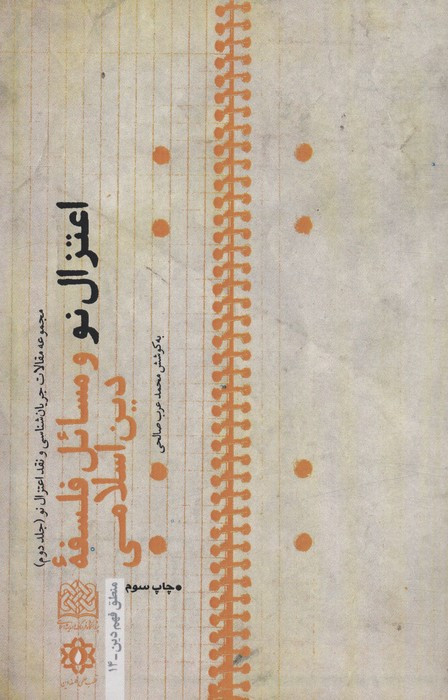 مجموعه مقالات جریان‌شناسی و نقد اعتزال نو (جلد دوم)
اعتزال نو و مسائل فلسفهٔ
دین اسلامی
به کوشش محمد عرب صالحی
• چاپ سوم
منطق فهم دین ـ ۱۴